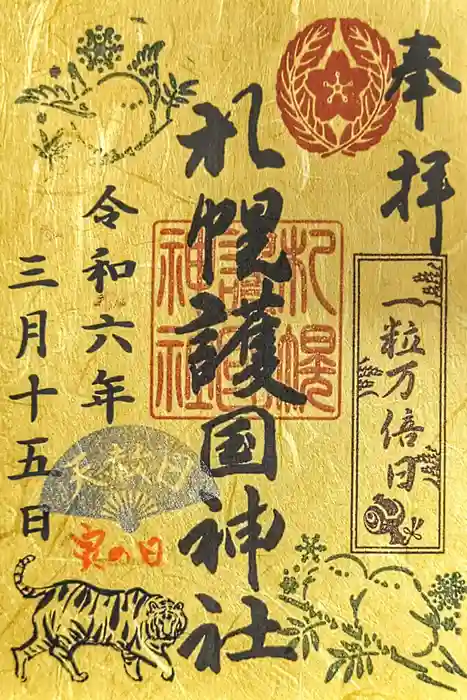 奉拝
一粒万倍日
札幌護国神社
札幌護国神社
令和六年
三月十五日
天赦日
寅の日